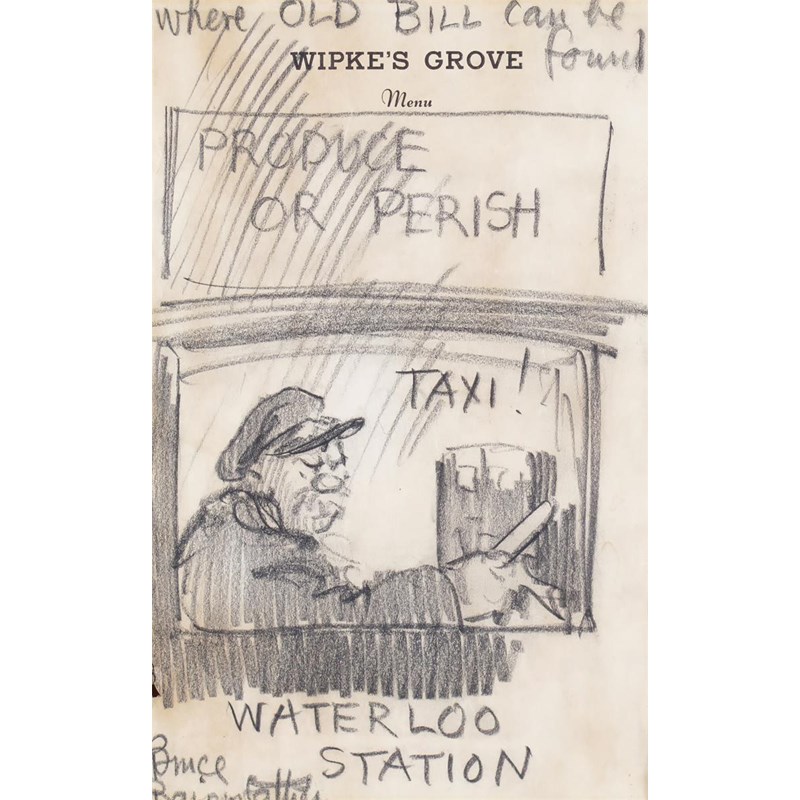 where OLD BILL can be
found
WIPKE'S GROVE
Menu
PRODUCE
OR PERISH
TAXI!
WATERLOO
STATION
Bruce
Bairnsfather